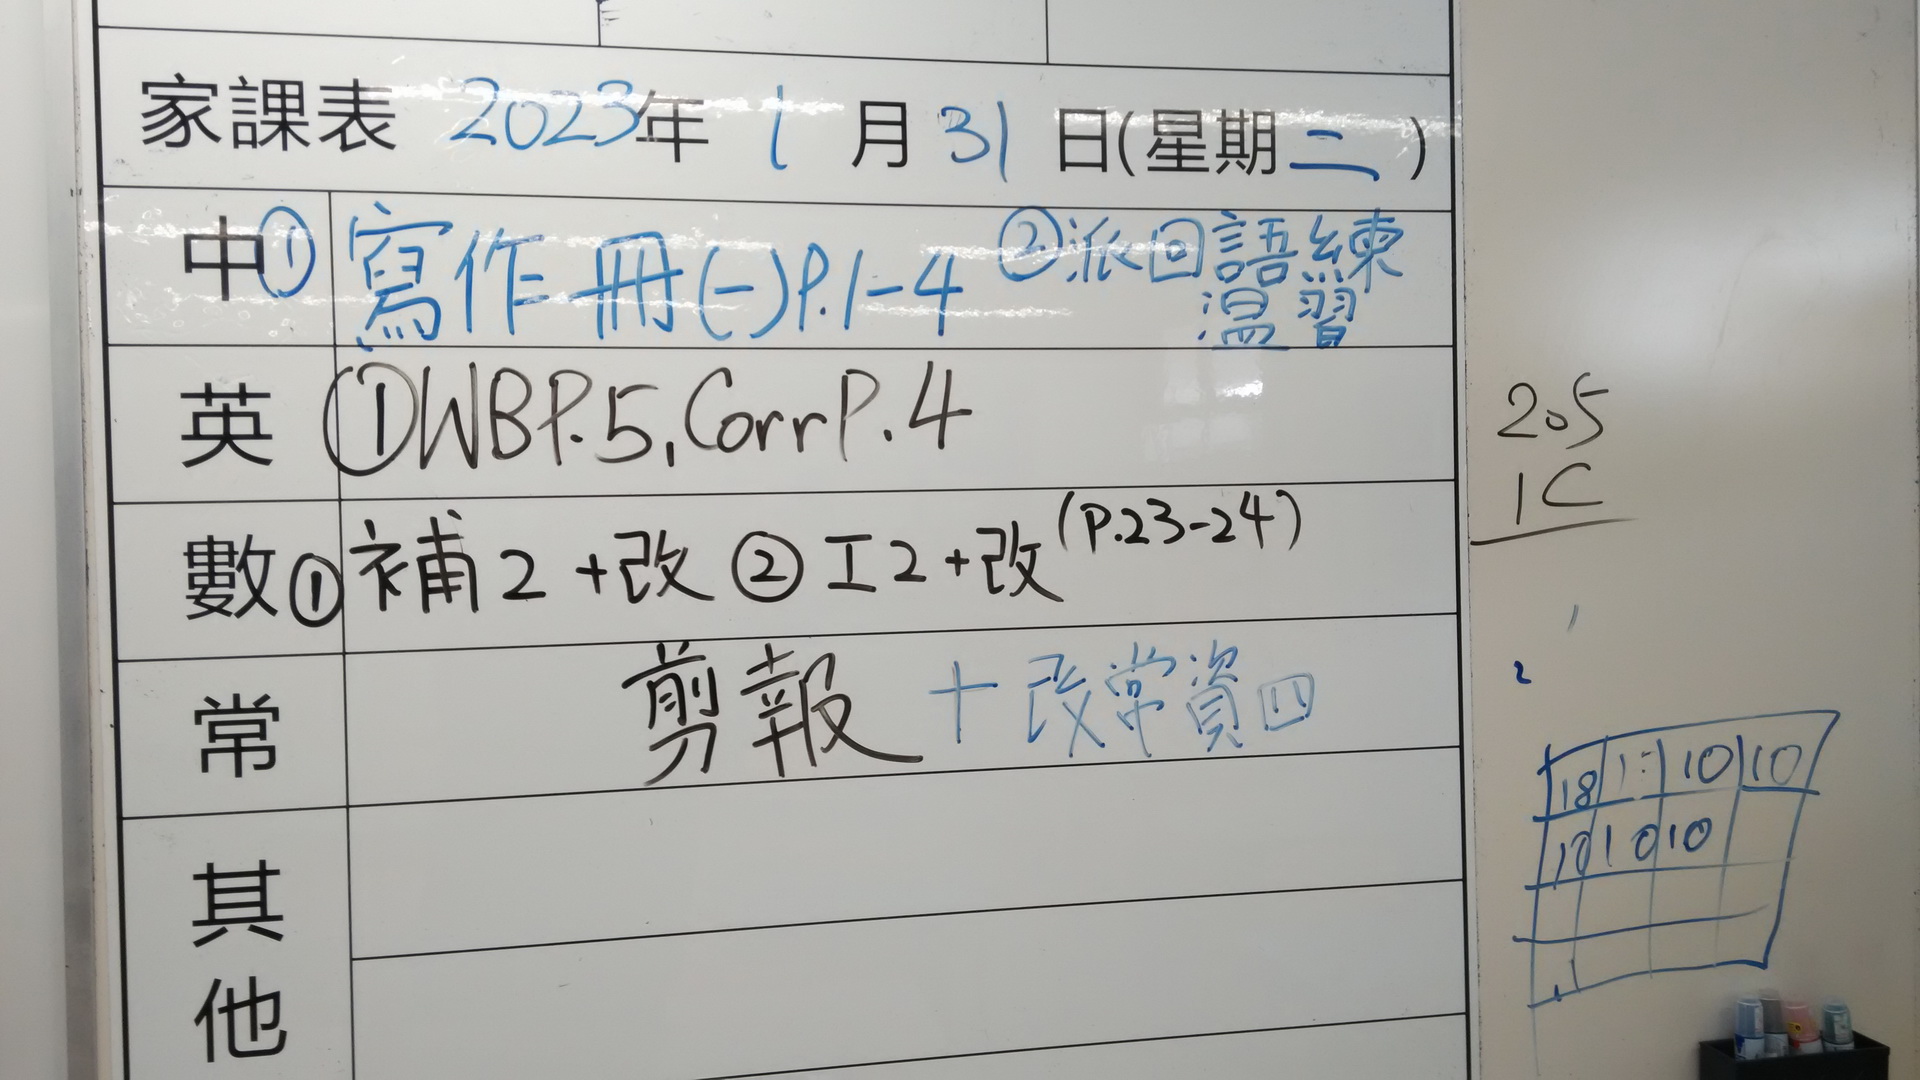 家課表 2023年 1 月 31 日(星期二)
中① 寫作冊(一)P.1-4 ②派回語練
溫習
英 ①WBP.5,CorrP.4
數① 補2+改 ②工2+改(P.23-24)
常 剪報 + 改常資四
其
他
205
1C
2
18 10 10
10 10 10